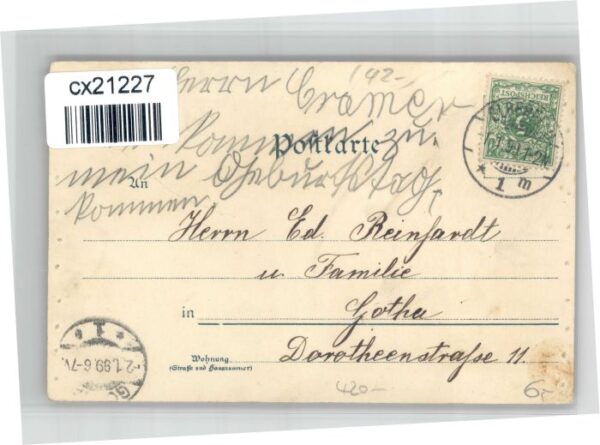 cx21227
Herrn
142-
Cramer
kommen zu
Postkarte
mein Geburtstag,
An
kommen
Herrn Ed. Reinhardt
u. Familie
in Gotha
Wohnung
(Straße und Hausnummer)
Dorotheenstraße 11.
420-
6,-
REICHSPOST
5
1 m
1
2.1.99.6-7V.